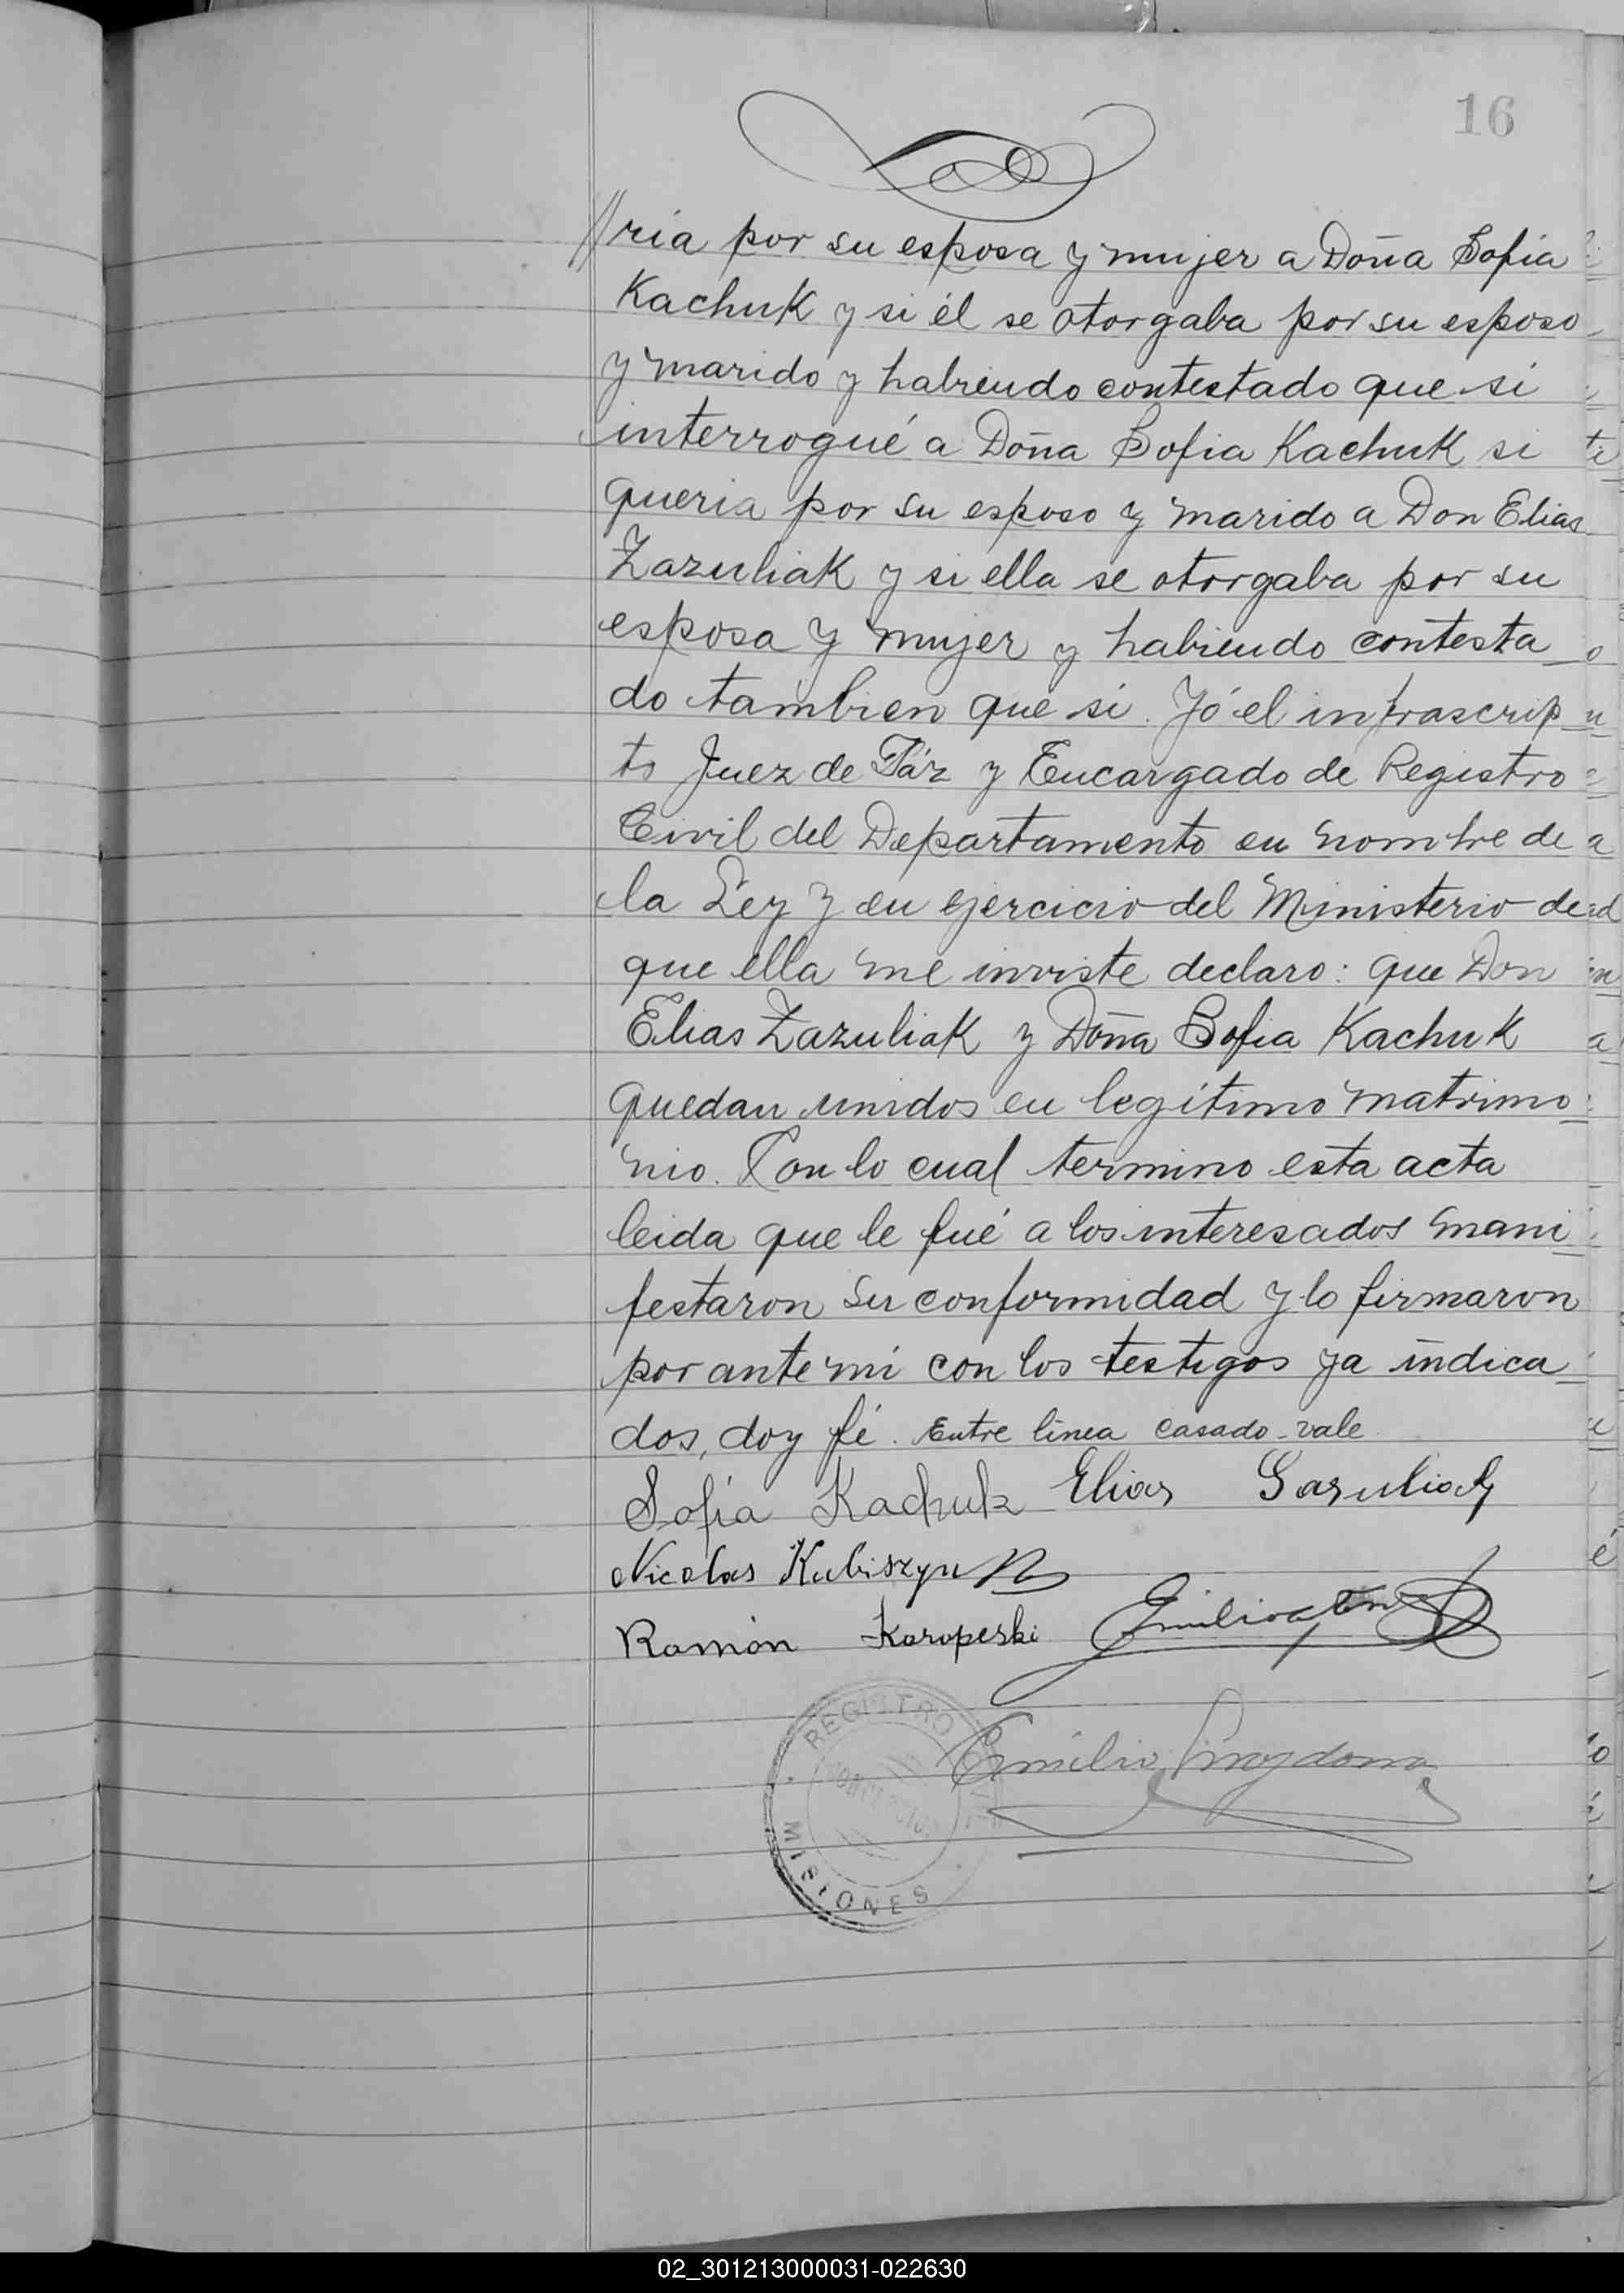 16
//ria por su esposa y mujer a Doña Sofia
Kachuk y si él se otorgaba por su esposo
y marido y habiendo contestado que si
interrogué a Doña Sofia Kachuk si
queria por su esposo y marido a Don Elias
Zazuliak y si ella se otorgaba por su
esposa y mujer y habiendo contesta
do tambien que si. Yó el infrascrip
to Juez de Páz y Encargado de Registro
Civil del Departamento en nombre de
la Ley y en ejercicio del Ministerio de
que ella me inviste declaro: que Don
Elias Zazuliak y Doña Sofia Kachuk
quedan unidos en legítimo matrimo
nio. Con lo cual termino esta acta
leida que le fué a los interesados mani
festaron su conformidad y lo firmaron
por ante mi con los testigos ya indica
dos, doy fé. Entre linea casado - vale
Sofia Kachuk Elias
Nicolas Kubiszyn
Ramón Karopeski
REGISTRO CIVIL
Emilio
MISIONES
02_301213000031-022630